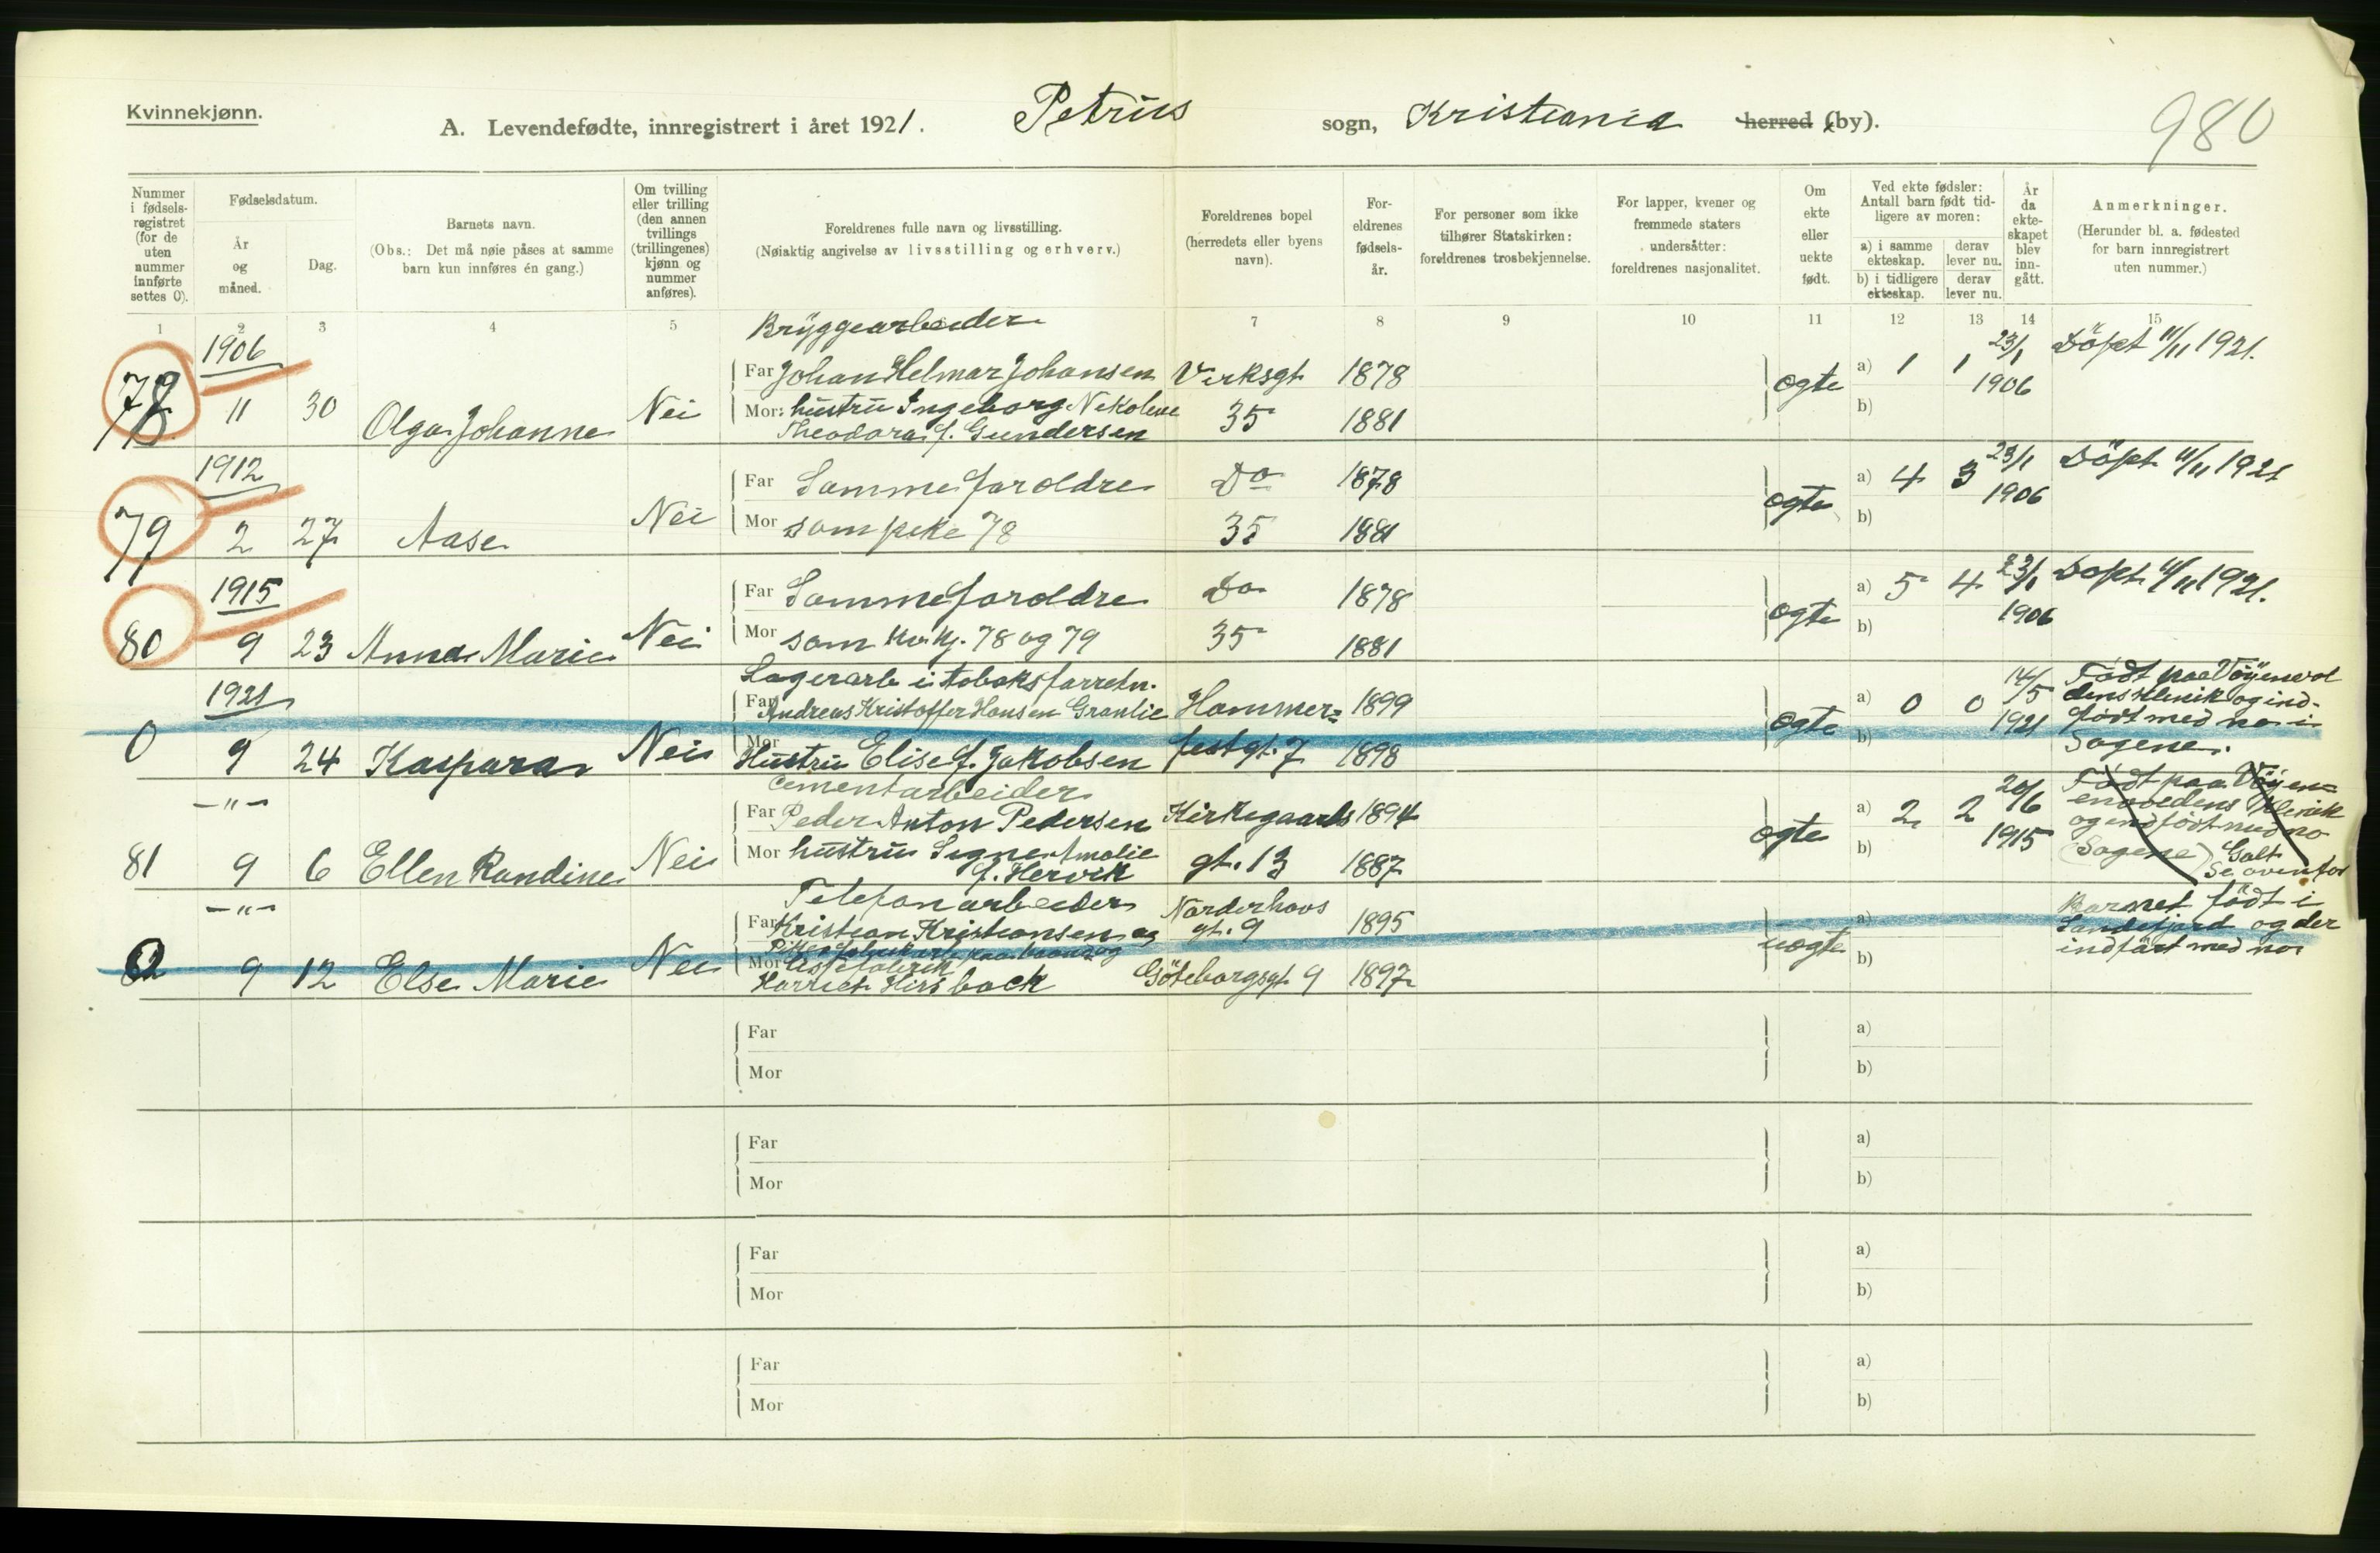 Kvinnekjønn.
A. Levendefødte, innregistrert i året 1921. Petrus sogn, Kristiania herred (by).
980
Nummer i fødsels-registret (for de uten nummer innførte settes 0).
Fødselsdatum.
År og måned.
Dag.
Barnets navn.
(Obs.: Det må nøie påses at samme barn kun innføres én gang.)
Om tvilling eller trilling (den annen tvillings (trillingenes) kjønn og nummer anføres).
Foreldrenes fulle navn og livsstilling.
(Nøiaktig angivelse av livsstilling og erhverv.)
Foreldrenes bopel (herredets eller byens navn).
For-eldrenes fødsels-år.
For personer som ikke tilhører Statskirken: foreldrenes trosbekjennelse.
For lapper, kvener og fremmede staters undersåtter: foreldrenes nasjonalitet.
Om ekte eller uekte født.
Ved ekte fødsler: Antall barn født tid-ligere av moren:
a) i samme ekteskap. derav lever nu.
b) i tidligere ekteskap. derav lever nu.
År da ekte-skapet blev inn-gått.
Anmerkninger.
(Herunder bl. a. fødested for barn innregistrert uten nummer.)
1 2 3 4 5 7 8 9 10 11 12 13 14 15
Bryggearbeider
1906
78 11 30 Olga Johanne Nei
Far Johan Helmar Johansen Verksgt 1878
Mor: hustru Ingeborg Nikoline 35 1881
Theodora f. Gundersen
ogte a) 1 1 23/1 1906 Döpt 11/11 1921.
b)
1912
79 2 27 Aase Nei
Far Samme foroldre Do 1878
Mor som pike 78 35 1881
ogte a) 4 3 23/1 1906 Döpt 11/11 1921
b)
1915
80 9 23 Anna Marie Nei
Far Samme foroldre Do 1878
Mor som kv.kj. 78 og 79 35 1881
ogte a) 5 4 23/1 1906 Döpt 11/11 1921.
b)
1921
Lagerarb i tobaksforretn.
0 9 24 Kaspara Nei
Far Andreas Kristoffer Hansen Granlie Hammer= 1899
Mor Hustru Elise f. Jakobsen festgt. 7 1898
ogte a) 0 0 14/5 1921
b)
Födt paa Vöyenvol
dens klinik og ind-
født med no i
Sagene.
—"—
Cementarbeider
81 9 6 Ellen Randine Nei
Far Peder Anton Pedersen Kirkegaards 1894
Mor hustru Signe Amalie gt. 13 1887
f. Hervik
ogte a) 2 2 20/6 1915
b)
Födt paa Vöyen=
klinik
og indfödt med no
Sagene) Galt
Se ovenfor
—"—
Telefonarbeider
0 9 12 Else Marie Nei
Far Kristian Kristiansen og Norderhovs gt. 9 1895
Mor Harriet Hirsback Göteborgsgt 9 1897
uogte a)
b)
Barnet födt i
Sandefjord og der
indfört med no
Far a)
Mor b)
Far a)
Mor b)
Far a)
Mor b)
Far a)
Mor b)